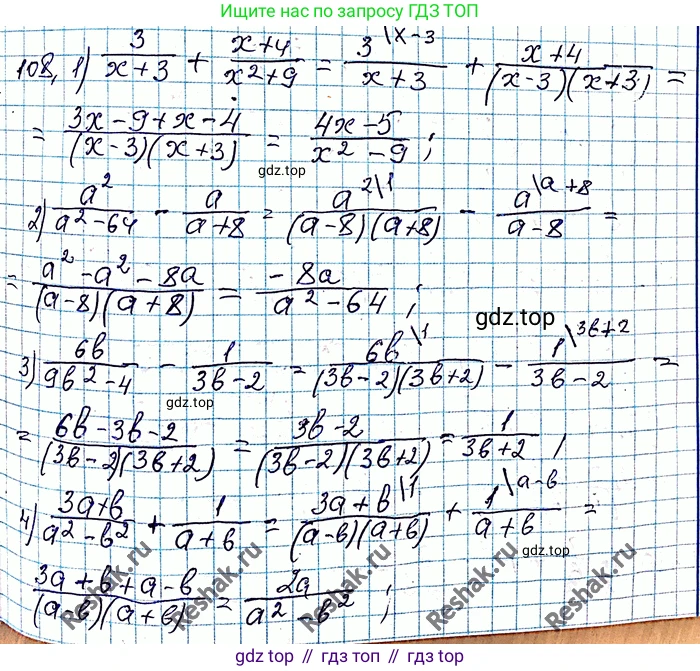 Ищите нас по запросу ГДЗ ТОП
108, 1) 3/(x+3) + (x+4)/(x²+9) = 3\x-3/(x+3) + (x+4)/((x-3)(x+3)) =
= (3x-9+x-4)/((x-3)(x+3)) = (4x-5)/(x²-9);
gdz.top
2) a²/(a²-64) - a/(a+8) = a²\1/((a-8)(a+8)) - a\a+8/(a-8) =
= (a²-a²-8a)/((a-8)(a+8)) = -8a/(a²-64);
gdz.top
3) 6b/(9b²-4) - 1/(3b-2) = 6b\1/((3b-2)(3b+2)) - 1\3b+2/(3b-2) =
gdz.top
= (6b-3b-2)/((3b-2)(3b+2)) = (3b-2)/((3b-2)(3b+2)) = 1/(3b+2);
4) (3a+b)/(a²-b²) + 1/(a+b) = (3a+b\1)/((a-b)(a+b)) + 1\a-b/(a+b) =
gdz.top
(3a+b+a-b)/((a-b)(a+b)) = 2a/(a²-b²);
Reshak.ru Reshak.ru Reshak.ru Reshak.ru Reshak.ru
gdz.top // гдз.топ // gdz.top // гдз.топ